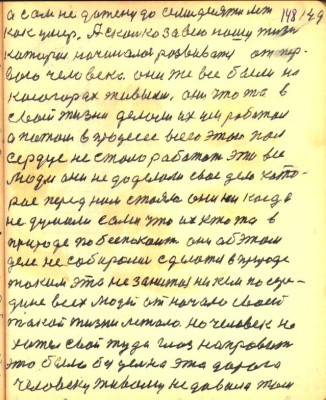 148 149
а сам не дотену до семидесяти лет
как умер. А сколко за всю нашу жизн
которая начиналас развиватя от пер-
вого человека. они же все были на
кологорах живыми, они что та в
своей жизни делали их им работал
а потом в процессе всего этого пал
сердце не стало работат эти все
люди они не доделали свое дело кото-
рае перед ним стояло они ни когда
не думали сами что их кто та в
природе побеспокоит они об этом
деле не собиралис сделат в природе
таким это не занятая ни кем по сере-
дине всех людей от начала своей
такой жизни легало. но человек не
хотел свой туда глаз направит
это было бы целка эта дорога
человеку живому не давала там